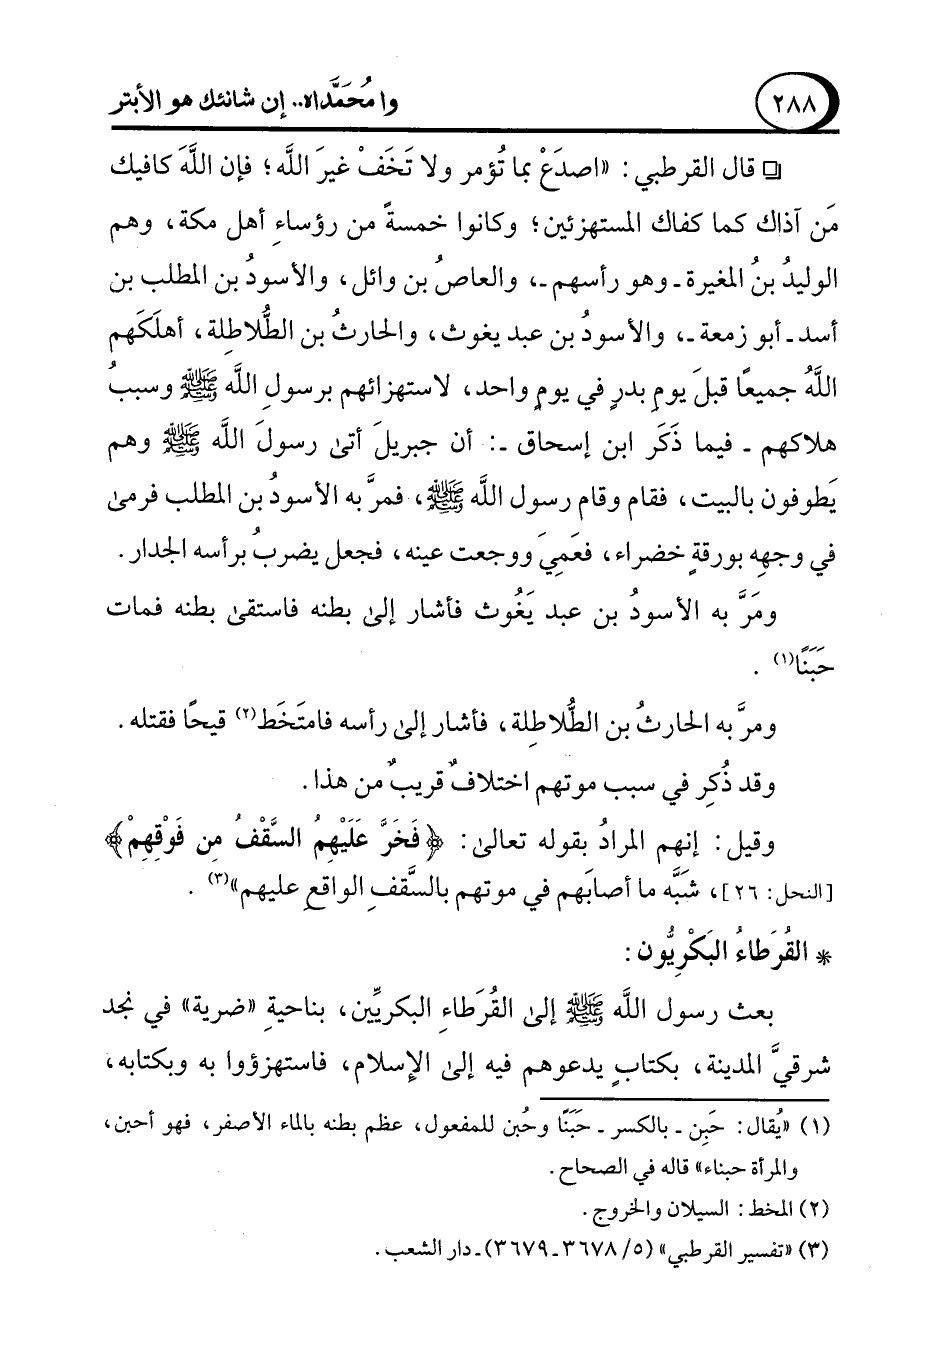 ٢٨٨
وا مُحَمَّداه.. إن شانئك هو الأبتر
❏ قال القرطبي: «اصدَعْ بما تُؤمر ولا تَخَفْ غيرَ اللَّه؛ فإن اللَّهَ كافيك
مَن آذاك كما كفاك المستهزئين؛ وكانوا خمسةً من رؤساءِ أهل مكة، وهم
الوليدُ بنُ المغيرة ـ وهو رأسهم ـ، والعاصُ بن وائل، والأسودُ بن المطلب بن
أسد ـ أبو زمعة ـ، والأسودُ بن عبد يغوث، والحارثُ بن الطُّلاطِلة، أهلَكَهم
اللَّهُ جميعًا قبلَ يومِ بدرٍ في يومٍ واحد، لاستهزائهم برسولِ اللَّه ﷺ وسببُ
هلاكهم ـ فيما ذَكَر ابن إسحاق ـ: أن جبريلَ أتىٰ رسولَ اللَّه ﷺ وهم
يَطوفون بالبيت، فقام وقام رسول اللَّه ﷺ، فمرَّ به الأسودُ بن المطلب فرمىٰ
في وجهِه بورقةٍ خضراء، فعَمِيَ ووجعت عينه، فجعل يضربُ برأسه الجدار.
ومَرَّ به الأسودُ بن عبد يَغُوث فأشار إلىٰ بطنه فاستقىٰ بطنه فمات
حَبَنًا(١).
ومرَّ به الحارثُ بن الطُّلاطِلة، فأشار إلىٰ رأسه فامتَخَط(٢) قيحًا فقتله.
وقد ذُكِر في سبب موتهم اختلافٌ قريبٌ من هذا.
وقيل: إنهم المرادُ بقوله تعالىٰ: ﴿فَخَرَّ عَلَيْهِمُ السَّقْفُ مِن فَوْقِهِمْ﴾
[النحل: ٢٦]، شبَّه ما أصابَهم في موتهم بالسَّقفِ الواقعِ عليهم»(٣).
* القُرَطاءُ البَكْرِيُّون:
بعث رسول اللَّه ﷺ إلىٰ القُرَطاءِ البكريِّين، بناحيةِ «ضرية» في نجد
شرقيَّ المدينة، بكتابٍ يدعوهم فيه إلىٰ الإسلام، فاستهزؤوا به وبكتابه،
(١) «يُقال: حَبِن ـ بالكسر ـ حَبَنًا وحُبن للمفعول، عظم بطنه بالماء الأصفر، فهو أحبن،
والمرأة حبناء» قاله في الصحاح.
(٢) المخط: السيلان والخروج.
(٣) «تفسير القرطبي» (٥/ ٣٦٧٨ ـ ٣٦٧٩) ـ دار الشعب.